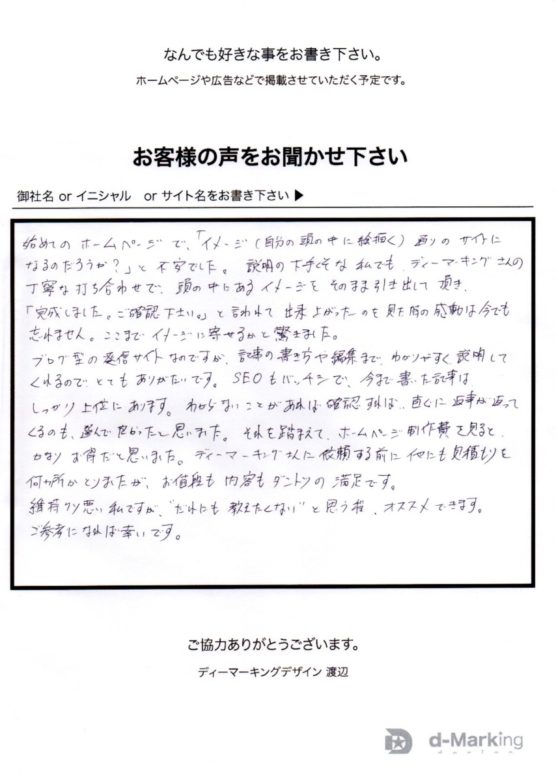 なんでも好きな事をお書き下さい。
ホームページや広告などで掲載させていただく予定です。
お客様の声をお聞かせ下さい
御社名 or イニシャル or サイト名をお書き下さい ▶
始めての ホームページ で、「イメージ (自分の頭の中に絵描く) 通りの サイトに
なるのだろうか?」と 不安でした。 説明の下手くそな 私でも、ディーマーキングさんの
丁寧な打ち合わせで、頭の中にある イメージを そのまま引き出して 頂き、
「完成しました。ご確認下さい。」と 言われて 出来上がったのを 見た時の 感動は今でも
忘れません。ここまで イメージに 寄せるかと 驚きました。
ブログ型の発信サイトなのですが、記事の書き方や編集まで、わかりやすく 説明して
くれるので、とても ありがたいです。 SEOもバッチシで、今まで 書いた記事は
しっかり 上位に あります。 わからないことが あれば 確認すれば、直ぐに 返事が返って
くるのも、選んで良かったと 思いました。 それを踏まえて、ホームページ 制作費を見ると、
かなり お得だと思いました。ディーマーキングさんに 依頼する前に 他にも 見積もりを
何ヶ所か とりましたが、お値段も 内容も ダントツの 満足です。
悪い 私ですが、"だれにも 教えたくない" と 思う程、オススメ できます。
ご参考になれば 幸いです。
ご協力ありがとうございます。
ディーマーキングデザイン 渡辺
d-Marking
design